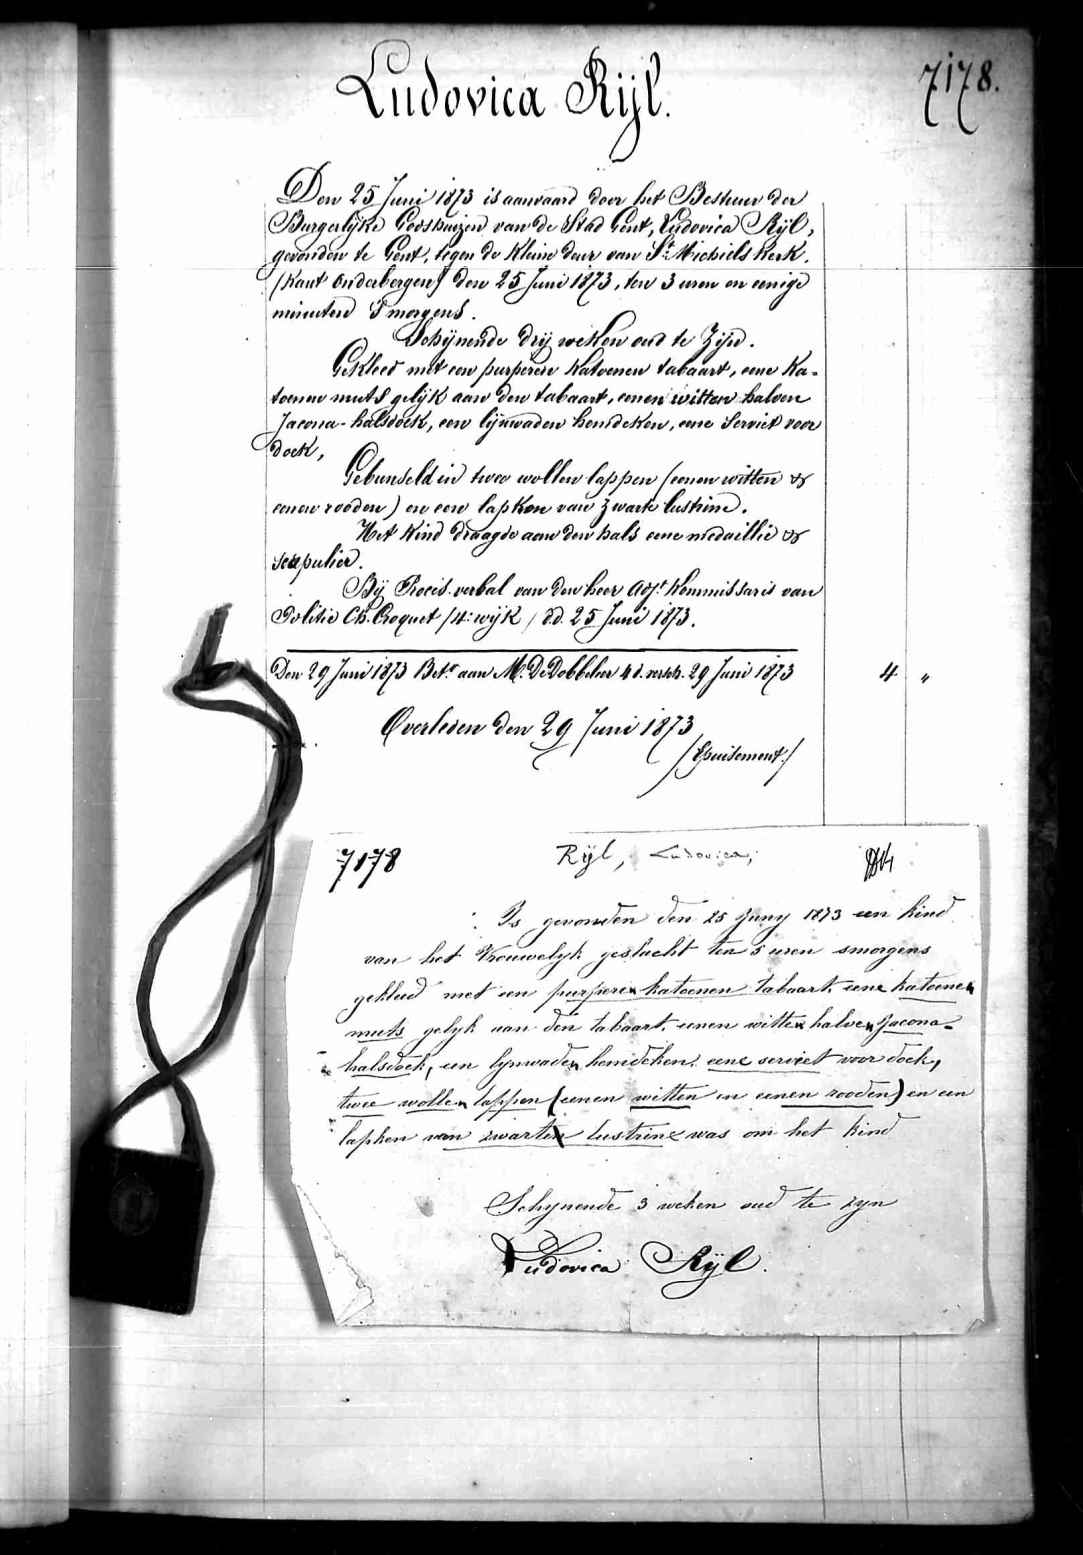 Ludovica Rijl.
7178.
Den 25 Juni 1873 is aanvaard door het Bestuur der
Burgerlijke Godshuizen van de Stad Gent, Ludovica Rijl,
gevonden te Gent, tegen de kleine deur van St. Michiels Kerk.
(Kant onderbergen) den 25 Juni 1873, ten 3 uren en eenige
minuten S'morgens.
Schijnende drij weken oud te Zijn.
Gekleed met een purperen katoenen tabaart, eene ka-
toenen muts gelijk aan den tabaart, eenen witten halven
Jacona-halsdoek, een lijnwaden hemdeken, eene Serviet voor
doek,
Gebunseld in twee wollen lappen (eenen witten &
eenen rooden) en een lapken van zwarte lustrine.
Het kind draagde aan den hals eene medaillie &
scapulier.
Bij Proces-verbal van den heer Adjt. Kommissaris van
Politie Ch. Croquet (4e wijk) d.d. 25 Juni 1873.
Den 29 Juni 1873 Bet. aan M. De Dobbeleer 4 d. versch. 29 Juni 1873
4 "
Overleden den 29 Juni 1873
(Epuisement.)
7178
Rijl, Ludovica,
Is gevonden den 25 Juny 1873 een kind
van het Vrouwelyk geslacht ten 5 uren smorgens
gekleed met een purperen katoenen tabaart, eene katoenen
muts gelyk aan den tabaart, eenen witten halven Jacona-
halsdoek, een lynwaden hemdeken, eene serviet voor doek,
twee wollen lappen (eenen witten en eenen rooden) en een
lapken van zwarten lustrine was om het kind
Schynende 3 weken oud te zyn
Ludovica Rijl.